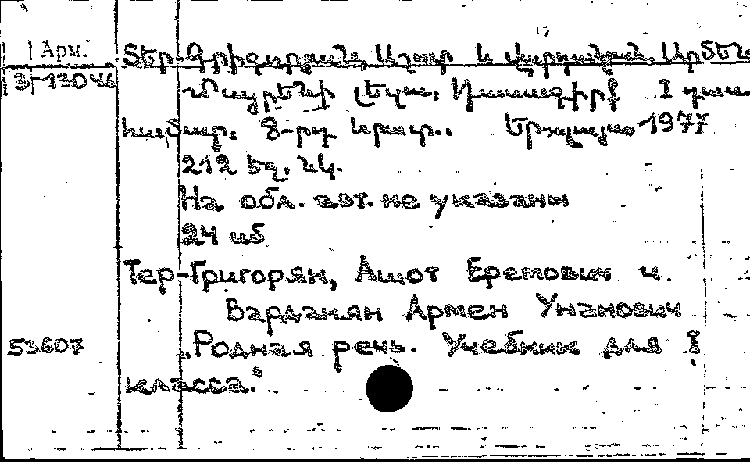 Арм.
Տեր-Գրիգորյան, Աշոտ և Վարդանյան, Արմեն
З-13046
Մայրենի լեզու. Դասագիրք I դաս.
համար. 8-րդ հրատ.. Երևան-1977
212 եջ. նկ.
На обл. авт. не указаны
24 иб
Тер-Григорян, Ашот Еремович и
Варданян Армен Унанович
53607 „Родная речь. Учебник для I
класса."